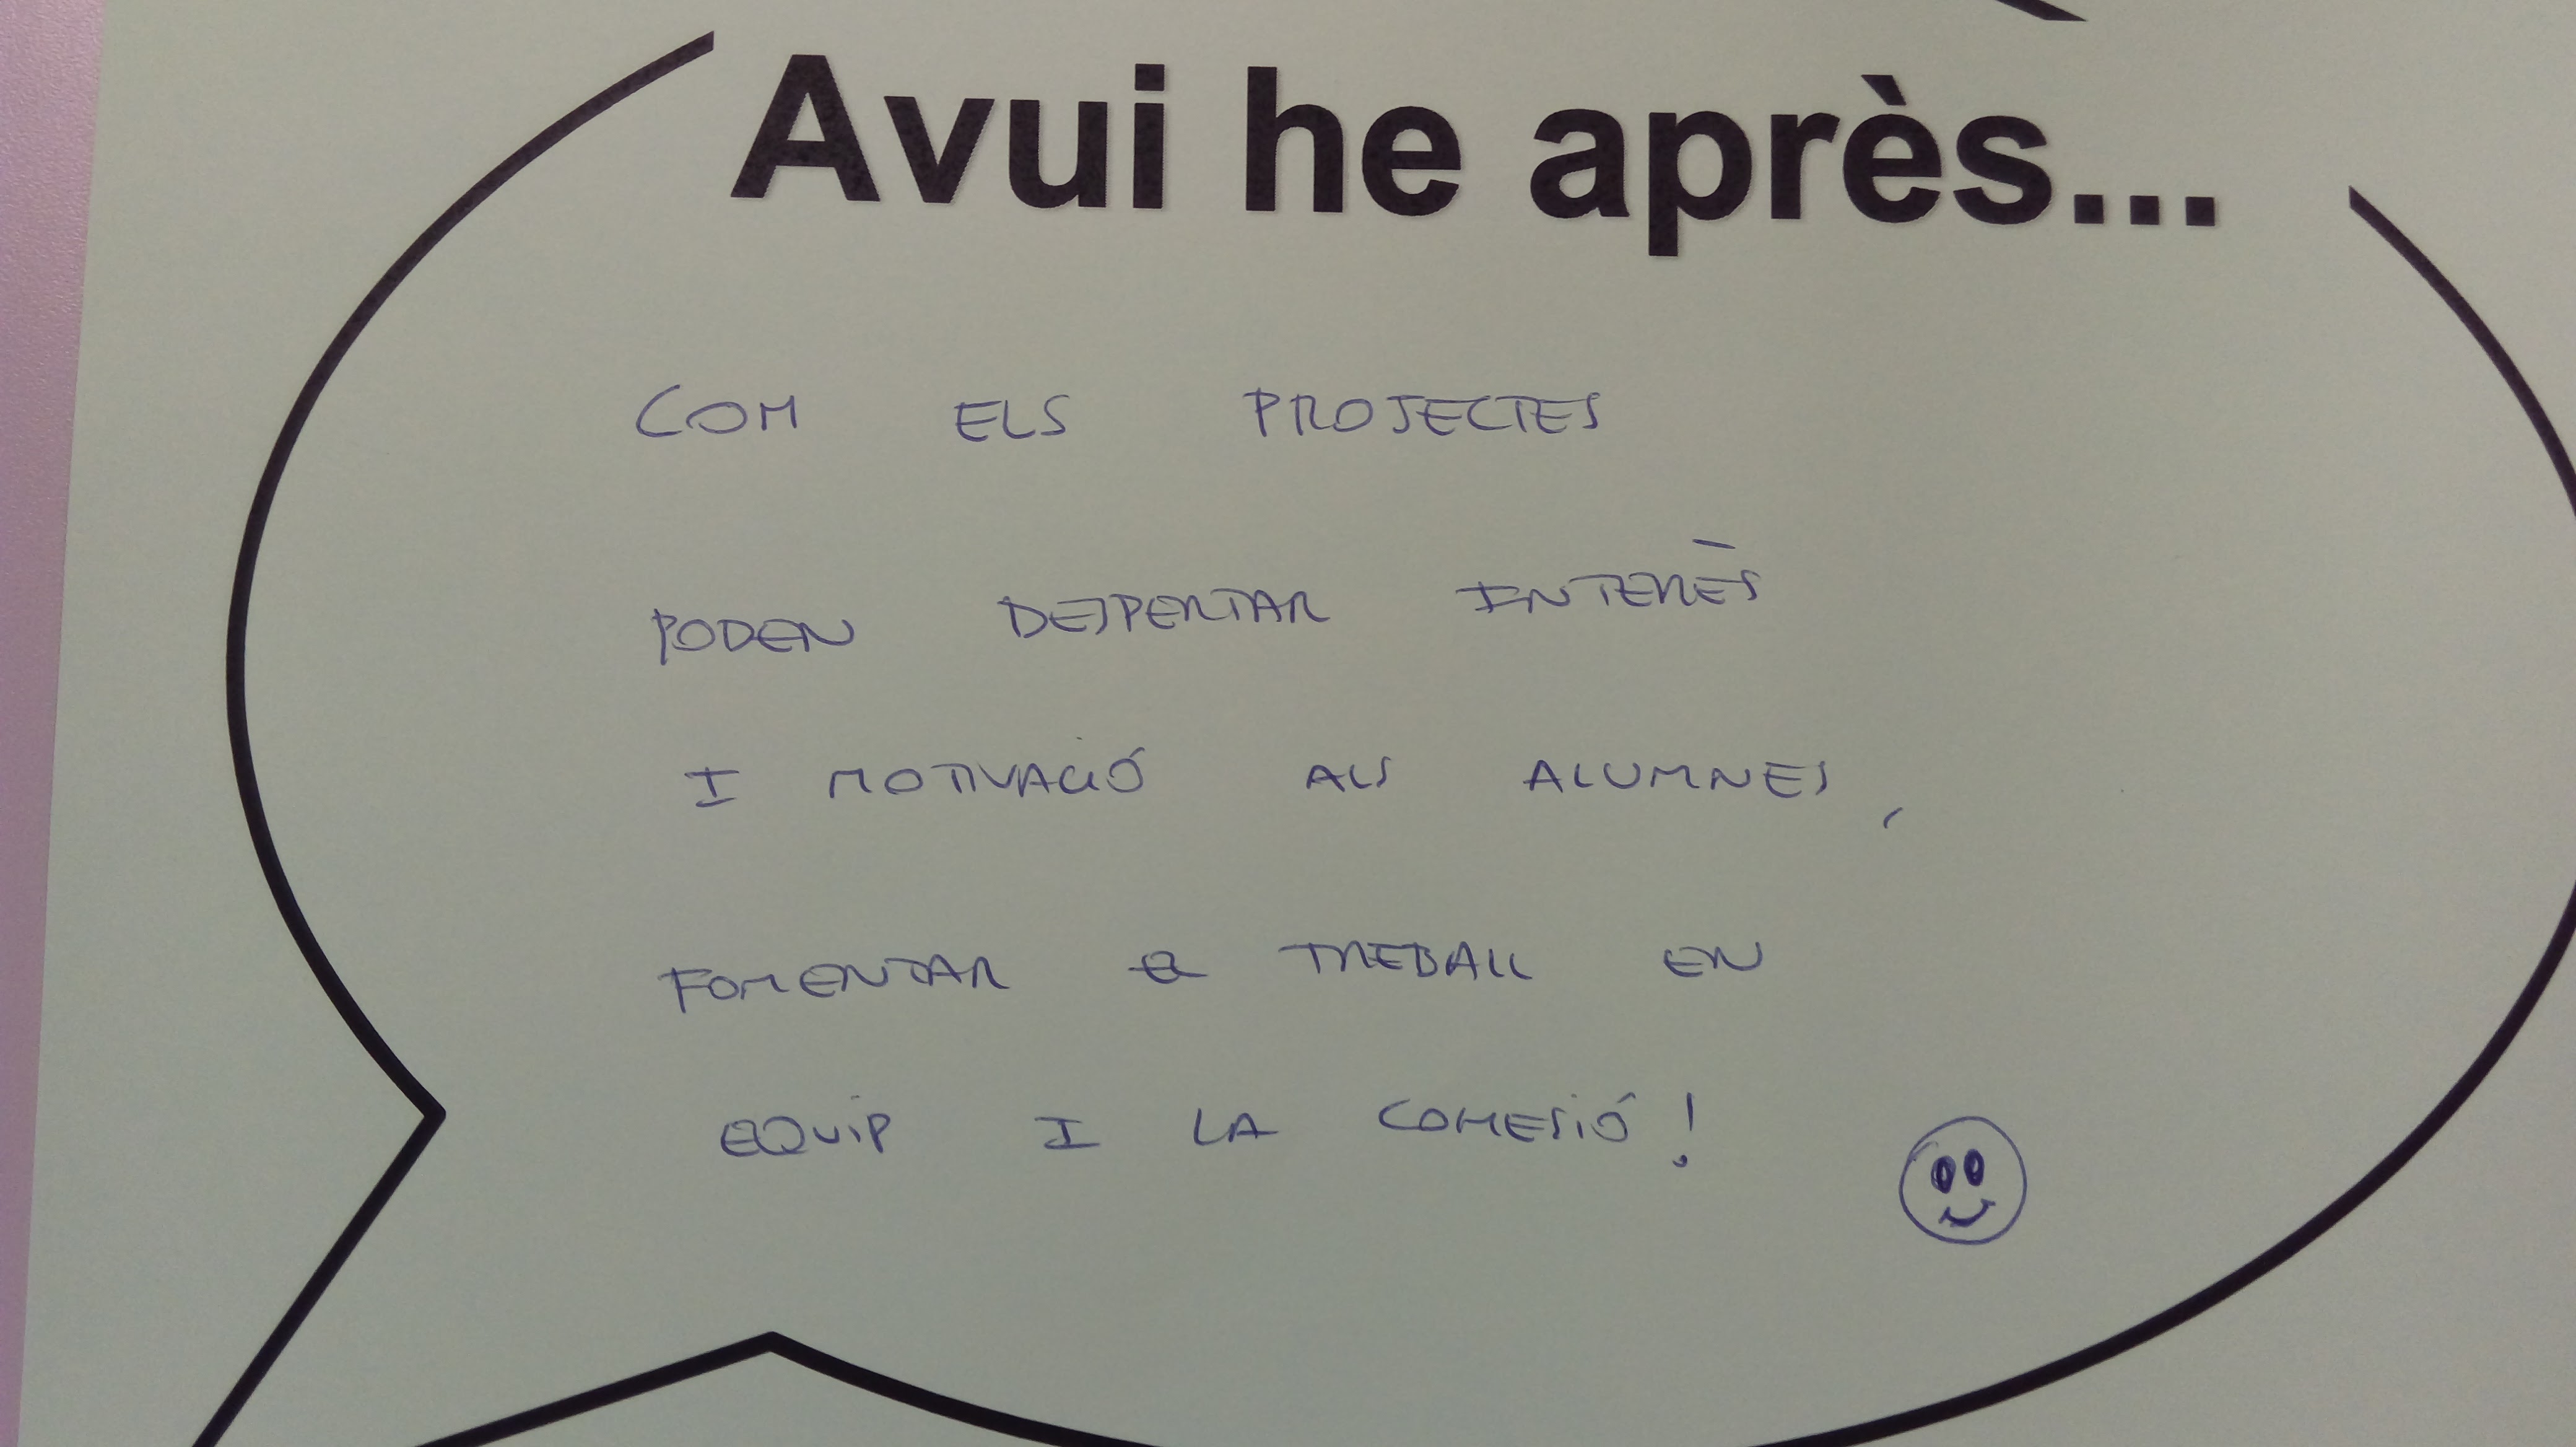 Avui he après...
COM ELS PROJECTES
PODEN DESPERTAR INTERÈS
I MOTIVACIÓ ALS ALUMNES,
FOMENTAR EL TREBALL EN
EQUIP I LA COHESIÓ!